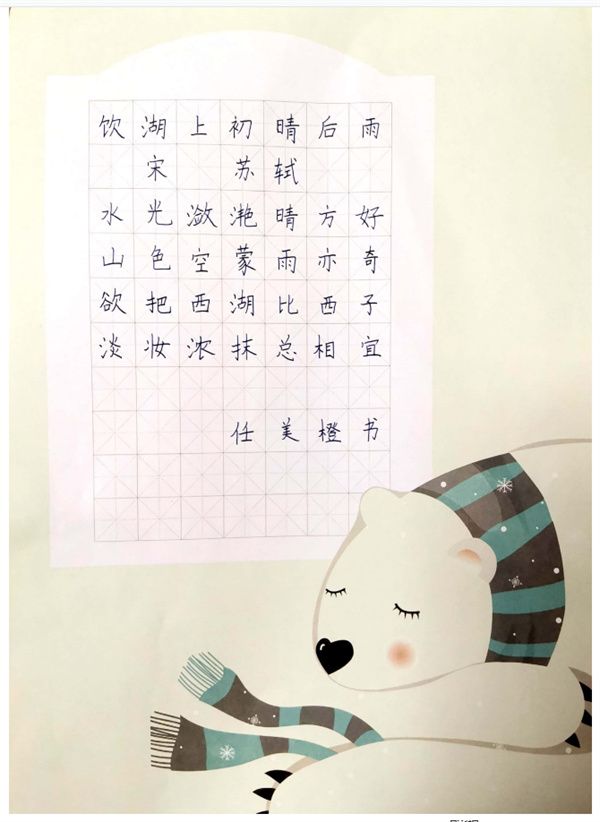 饮湖上初晴后雨
宋 苏轼
水光潋滟晴方好
山色空蒙雨亦奇
欲把西湖比西子
淡妆浓抹总相宜
任美橙书